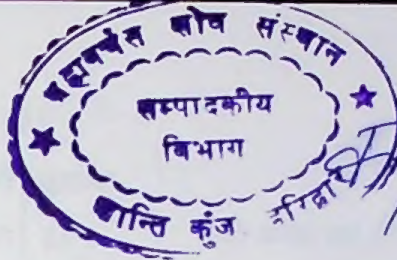 ब्रह्मवर्चस शोध संस्थान
सम्पादकीय
विभाग
शान्ति कुंज हरिद्वार